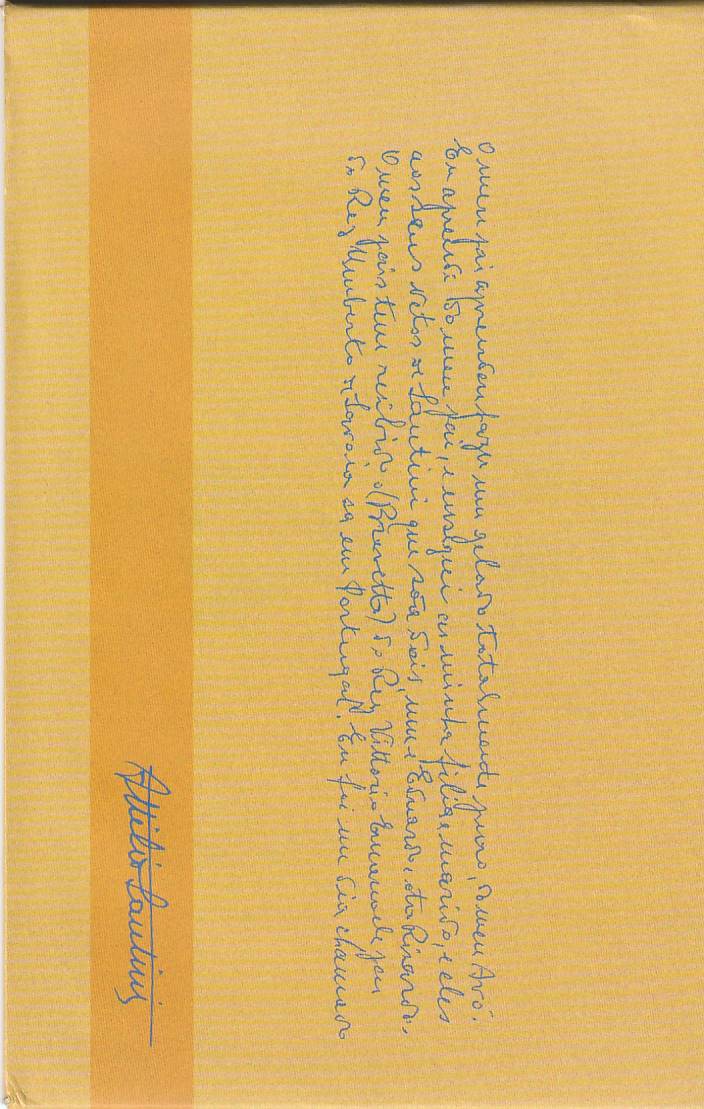 O meu pai aprendeu fazer um gelado totalmente puro, do meu Avô.
Eu aprendi do meu pai, e ensinei a minha filia e marido, e eles
aos seus netos de Santini que são dois, um e Eduardo e otro Ricardo.
O meu pais tem recibido o (Brevetto) do Rey Vittorio Emanuele
do Rey Umberto de Savoia sa em Portugal. Eu fui un dia chamado
Attilio Santini